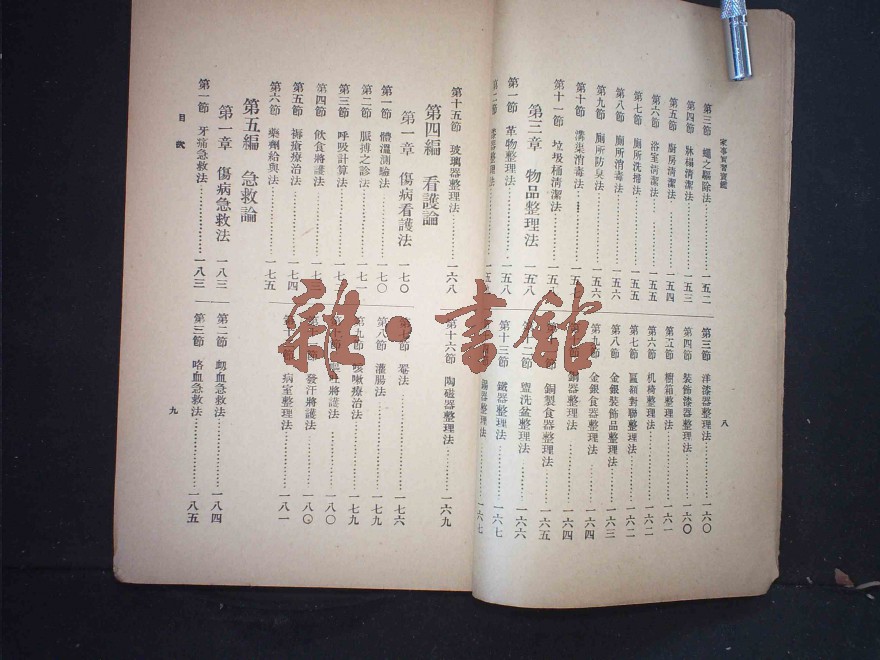 家事實習寶鑑
八
第三節 蠅之驅除法 一五二
第四節 牀榻清潔法 一五三
第五節 廚房清潔法 一五四
第六節 浴室清潔法 一五五
第七節 廁所洗掃法 一五五
第八節 廁所消毒法 一五六
第九節 廁所防臭法 一五六
第十節 溝渠消毒法
第十一節 垃圾桶清潔法 一五八
第三章 物品整理法 一五八
第一節 革物整理法 一五八
第二節
第三節 洋漆器整理法 一六〇
第四節 裝飾漆器整理法 一六〇
第五節 櫥箱整理法 一六一
第六節 机椅整理法 一六二
第七節 區額對聯整理法 一六二
第八節 金銀裝飾品整理法 一六三
第九節 金銀食器整理法 一六四
銅器整理法 一六四
銅製食器整理法 一六五
盥洗盆整理法 一六六
第十三節 鐵器整理法 一六七
錫器整理法 一六七
第十五節 玻璃器整理法 一六八
第十六節 陶磁器整理法 一六九
第四編 看護論
第一章 傷病看護法 一七〇
第一節 體溫測驗法 一七〇
第二節 脈搏之診法 一七一
第三節 呼吸計算法
第四節 飲食將護法 一七三
第五節 褥瘡療治法 一七四
第六節 藥劑給與法 一七五
第七節 罨法 一七六
第八節 灌腸法 一七九
第九節 咳嗽療治法 一七九
嘔吐將護法 一八〇
發汗將護法 一八〇
病室整理法 一八一
第五編 急救論
第一章 傷病急救法 一八三
第一節 牙痛急救法 一八三
第二節 衂血急救法 一八四
第三節 咯血急救法 一八五
目次
九
雜·書館